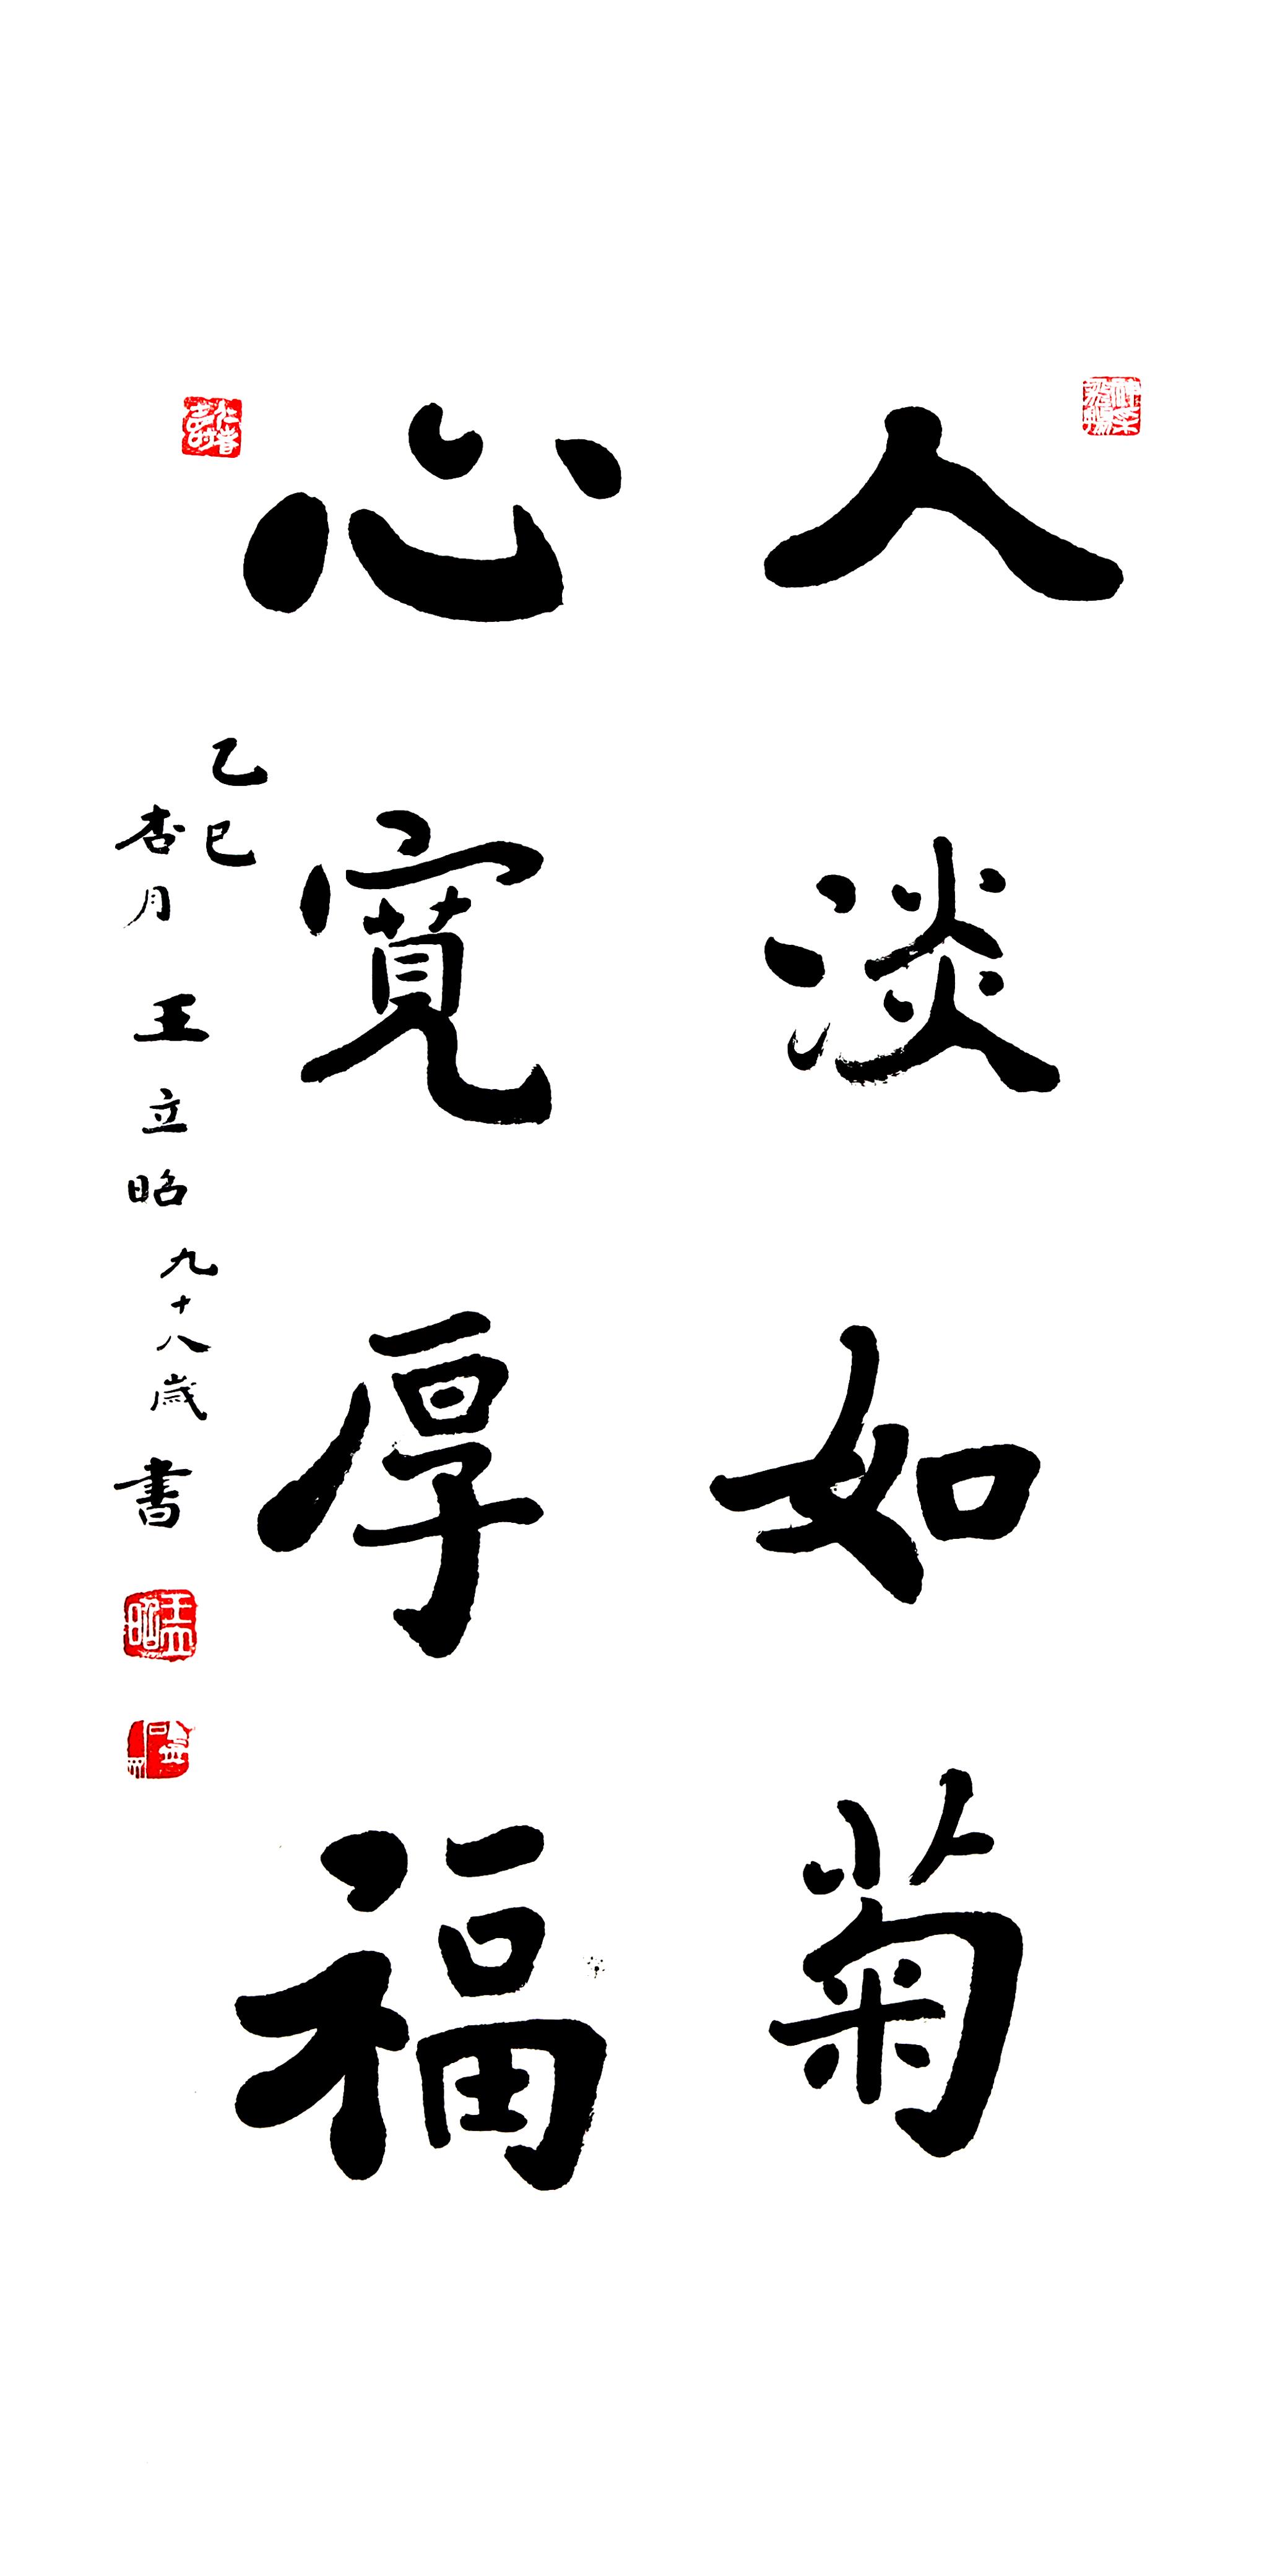 人淡如菊
心寬厚福
乙巳
杏月 王立昭 九十八歲 書
王立昭